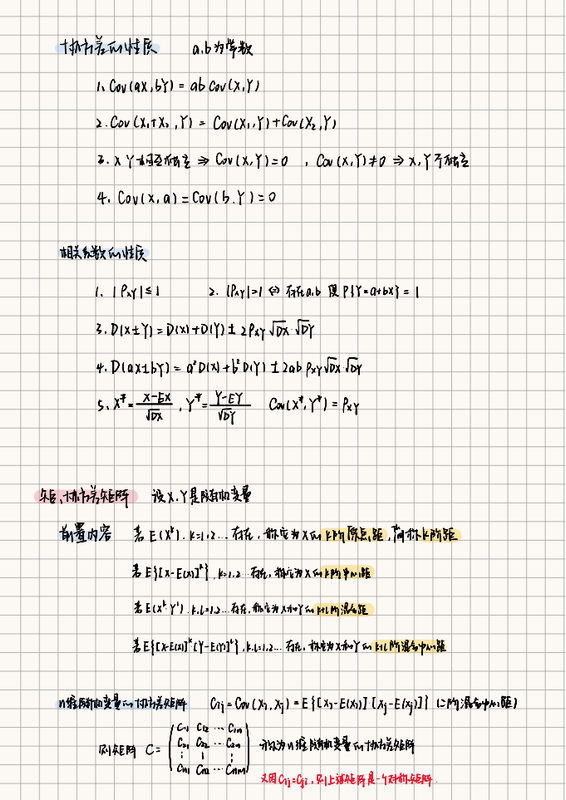 协方差的性质 a,b为常数
1. Cov(aX,bY) = ab Cov(X,Y)
2. Cov(X₁+X₂,Y) = Cov(X₁,Y)+Cov(X₂,Y)
3. X Y相互独立 ⇒ Cov(X,Y)=0 , Cov(X,Y)≠0 ⇒ X,Y不独立
4. Cov(X,a)=Cov(b,Y)=0
相关系数的性质
1. |ρxy|≤1 2. |ρxy|=1 ⇔ 存在a,b 使 P{Y=a+bX} = 1
3. D(X±Y)=D(X)+D(Y)±2ρxy√DX·√DY
4. D(aX±bY) = a²D(X)+b²D(Y)±2ab ρxy√DX·√DY
5. X*=(X-EX)/√DX , Y*=(Y-EY)/√DY Cov(X*,Y*)=ρxy
矩、协方差矩阵 设X,Y是随机变量
前置内容 若E(Xᵏ), k=1,2... 存在, 称它为X的k阶原点矩, 简称k阶矩
若E{[X-E(X)]ᵏ}, k=1,2... 存在, 称它为X的k阶中心矩
若E(XᵏYˡ), k,l=1,2... 存在, 称它为X和Y的k+l阶混合矩
若E{[X-E(X)]ᵏ[Y-E(Y)]ˡ}, k,l=1,2... 存在, 称它为X和Y的k+l阶混合中心矩
n维随机变量的协方差矩阵 Cij=Cov(Xi,Xj)=E{[Xi-E(Xi)][Xj-E(Xj)]} (二阶混合中心矩)
C₁₁ C₁₂ ··· C₁n
则矩阵 C= C₂₁ C₂₂ ··· C₂n 称为n维随机变量的协方差矩阵
⋮ ⋮ ⋮
Cn₁ Cn₂ ··· Cnn
又因Cij=Cji, 则上述矩阵是一个对称矩阵.